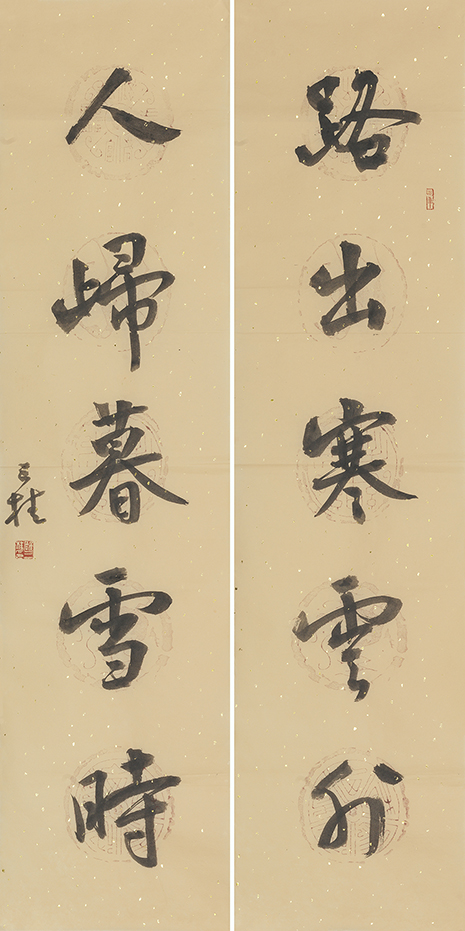 路出寒雲外
人歸暮雪時